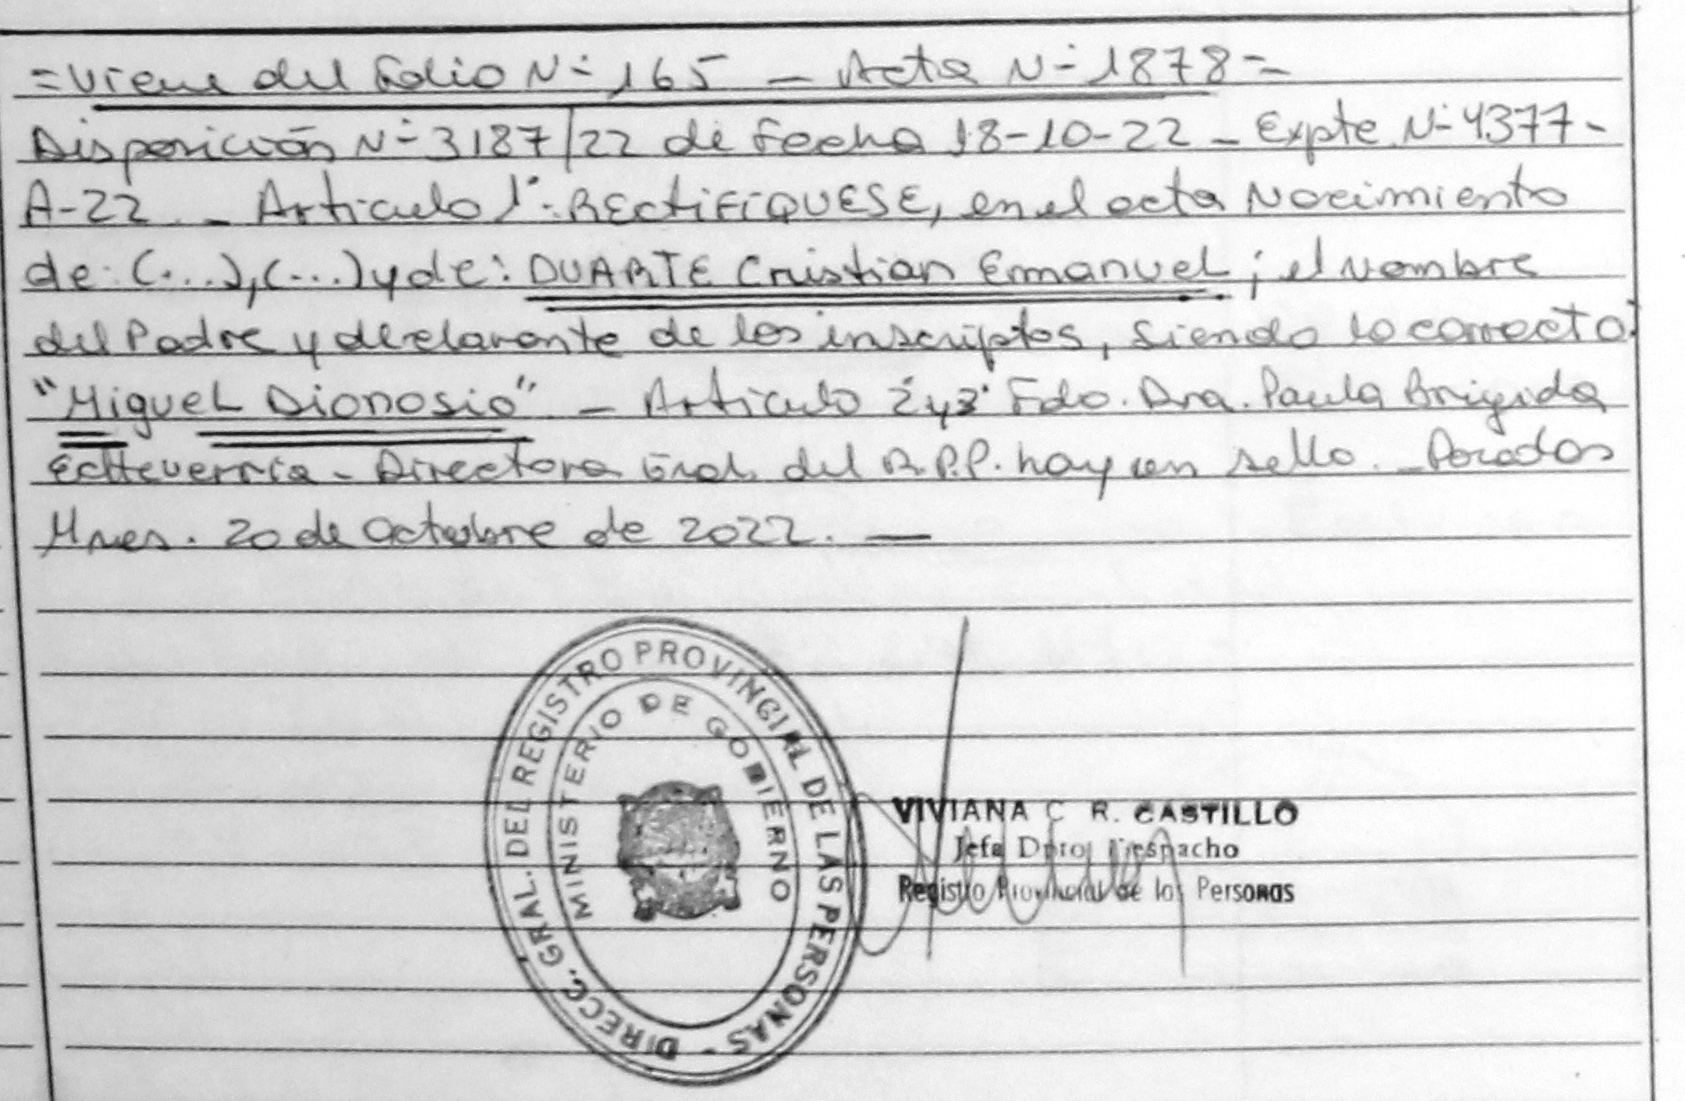 =Viene del Folio N=165 - Acta N-1878=
Disposición N=3187/22 de Fecha 18-10-22 - Expte. N-4377-
A-22 - Articulo 1°: RECTIFIQUESE, en el acta Nacimiento
de: (...), (...) y de: DUARTE Cristian Emanuel; el Nombre
del Padre y declarante de los inscriptos, siendo lo correcto:
"Miguel Dionosio" - Articulo 2 y 3° Fdo. Dra. Paula Brigida
Echeverria - Directora Gral. del R.P.P. hay un sello. - Posadas
Mnes. 20 de Octubre de 2022. —
DIRECC. GRAL. DEL REGISTRO PROVINCIAL DE LAS PERSONAS -
MINISTERIO DE GOBIERNO
VIVIANA C R. CASTILLO
Jefa Dpto. Despacho
Registro Provincial de las Personas